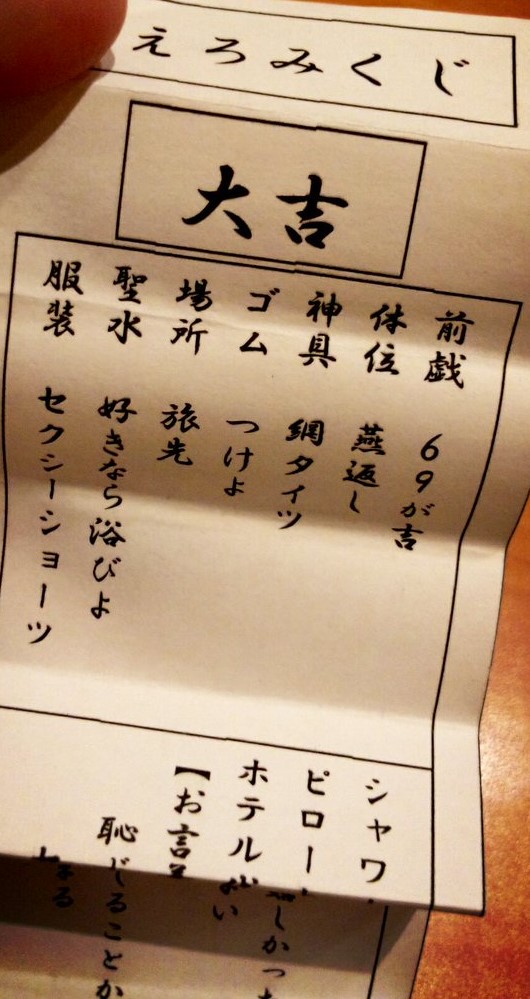 えろみくじ
大吉
前戯 69が吉
体位 燕返し
神具 網タイツ
ゴム つけよ
場所 旅先
聖水 好きなら浴びよ
服装 セクシーショーツ
シャワ
ピロー
ホテル
【お言
恥じることか